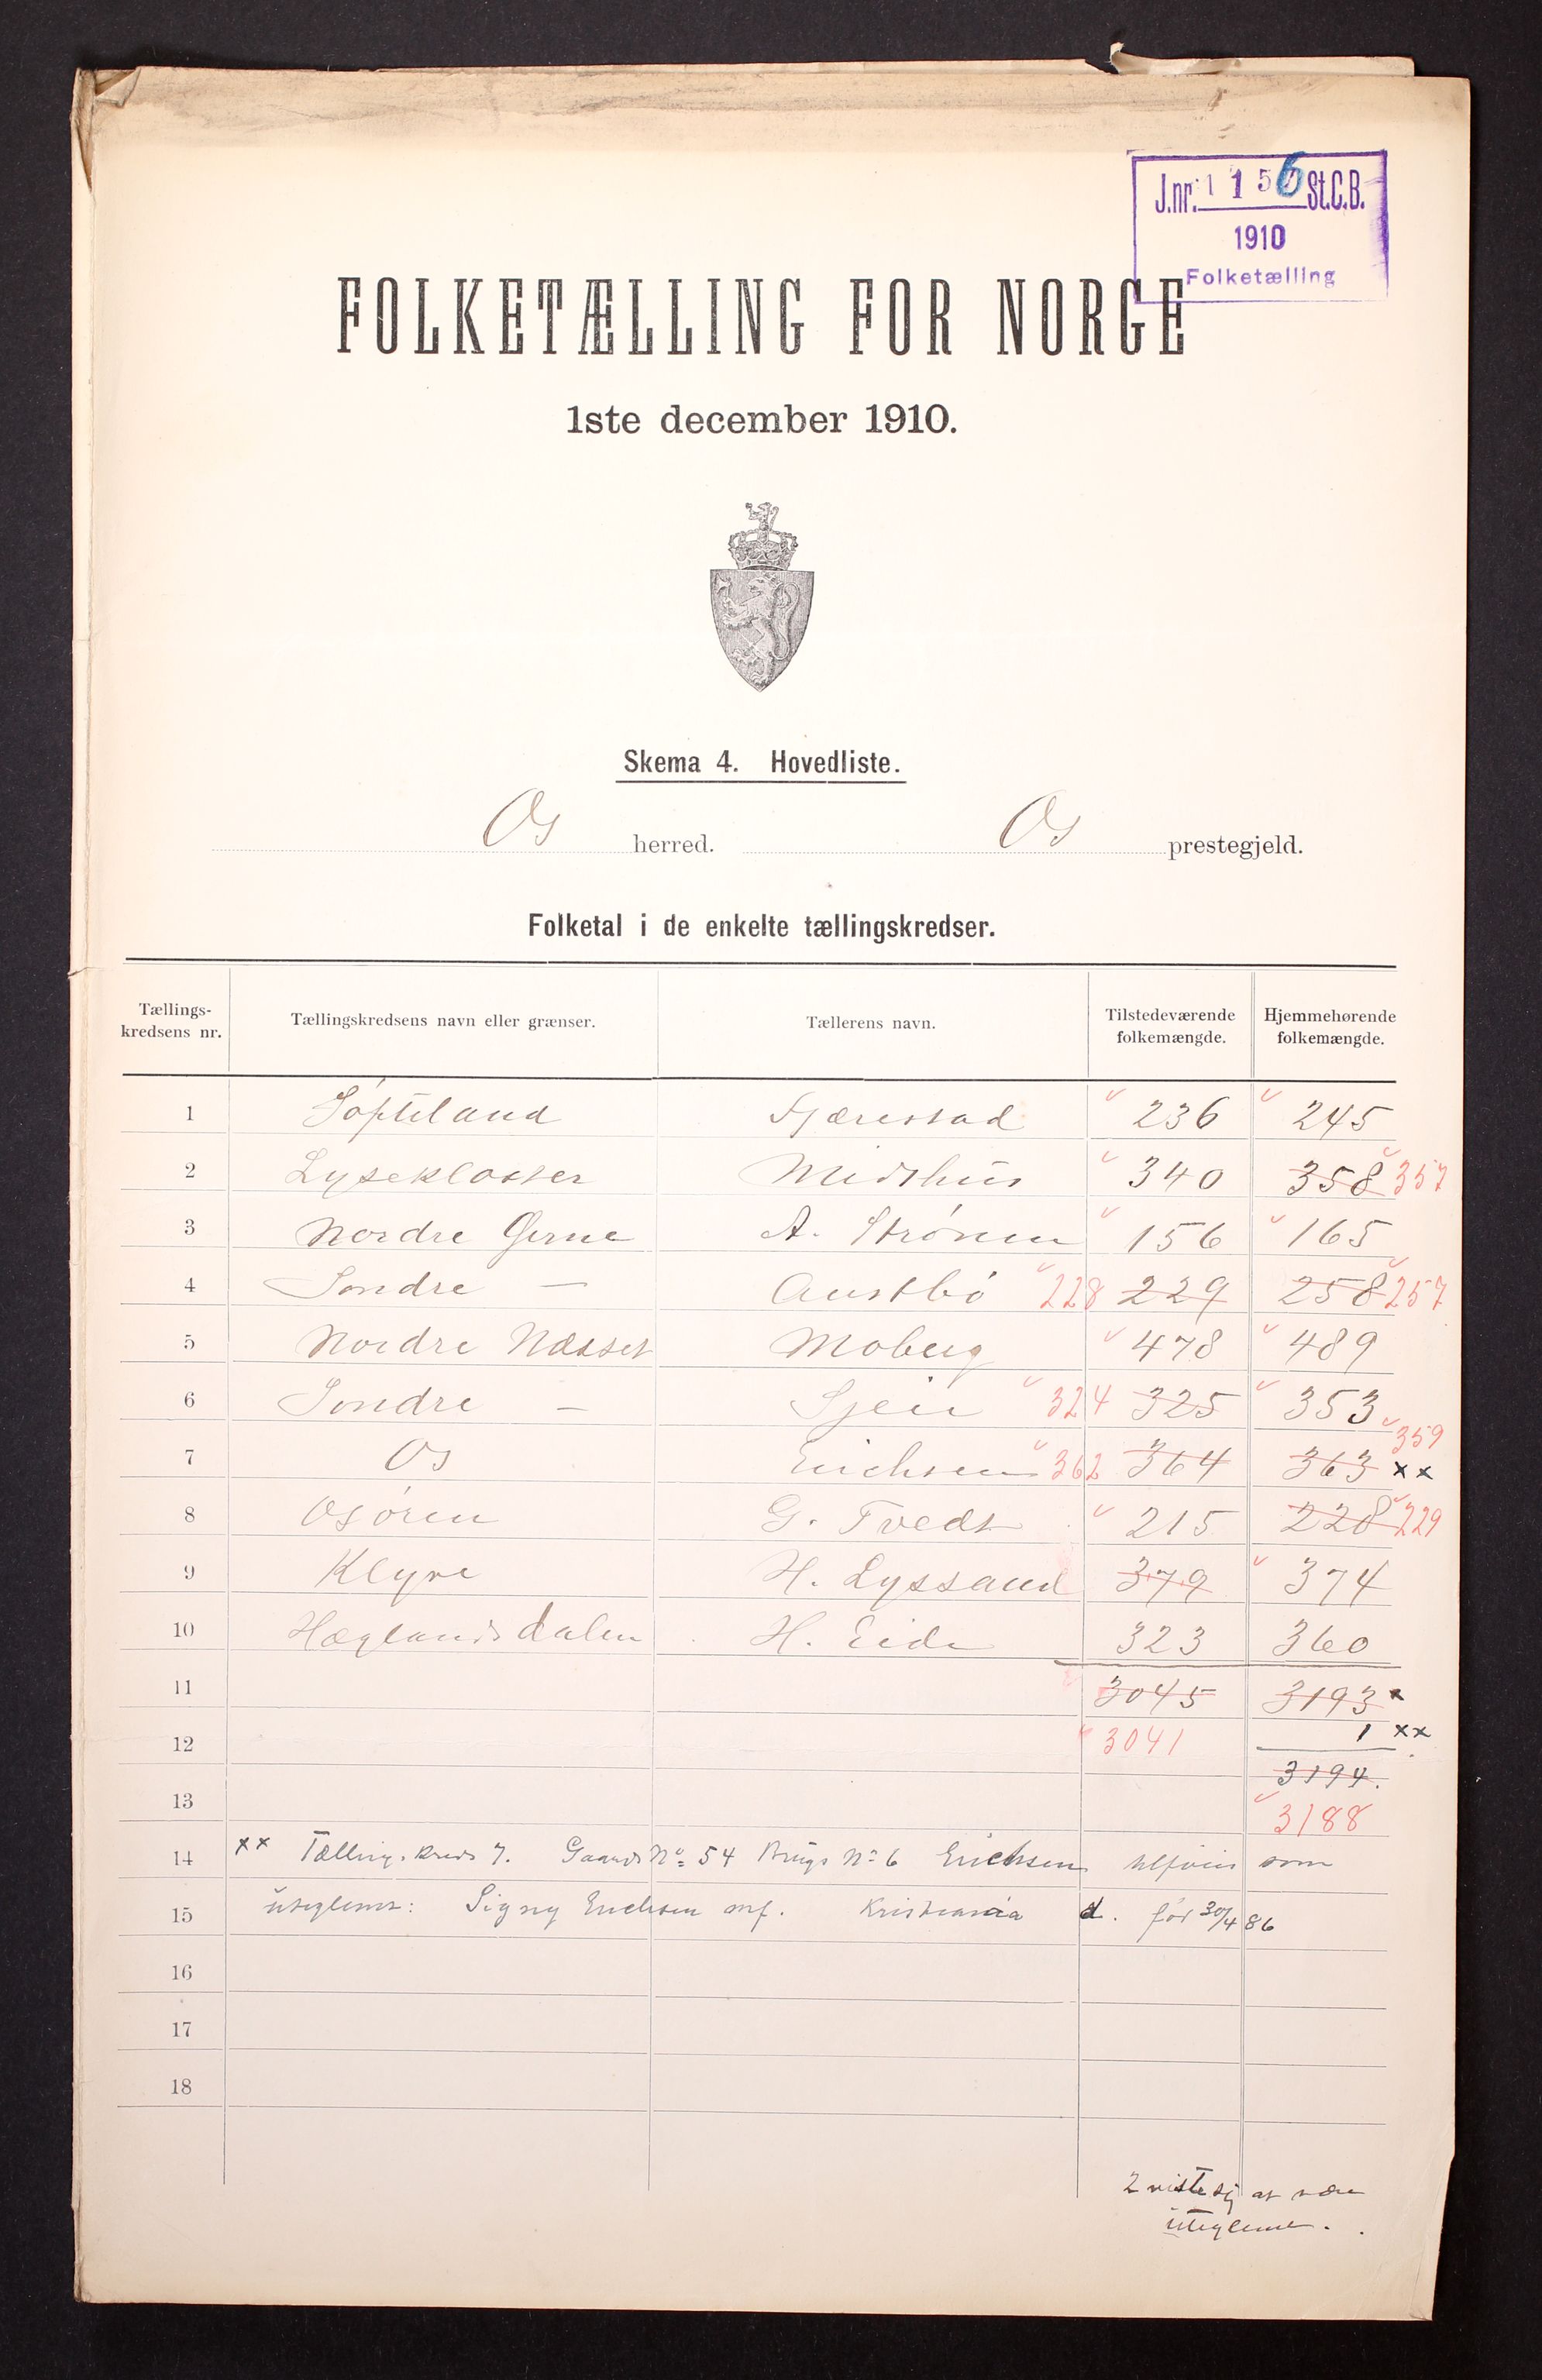 J.nr. 1156 St.C.B.
1910
Folketælling
FOLKETÆLLING FOR NORGE
1ste december 1910.
Skema 4. Hovedliste.
Os herred. Os prestegjeld.
Folketal i de enkelte tællingskredser.
Tællings-kredsens nr. Tællingskredsens navn eller grænser. Tællerens navn. Tilstedeværende folkemængde. Hjemmehørende folkemængde.
1 Søfteland Sjærestad 236 245
2 Lysekloster Midthus 340 358 357
3 Nordre Øerne A. Strønen 156 165
4 Søndre — Austbø 228 229 258 257
5 Nordre Næsset Moberg 478 489
6 Søndre — Sjeie 324 325 353
7 Os Erichsen 362 364 363 359 xx
8 Osøren G. Tvedt 215 228 229
9 Klyve H. Lyssand 379 374
10 Hæglandsdalen H. Eide 323 360
11 3045 3193 x
12 3041 1 xx
3194.
13 3188
14 xx Tællingskreds 7. Gaards No 54 Brugs No 6 Erichsen tilføies som
15 uteglemt: Signy Erichsen mf. Kristiania d. før 30/4 86
16
17
18
2 viste sig at være
uteglemt.